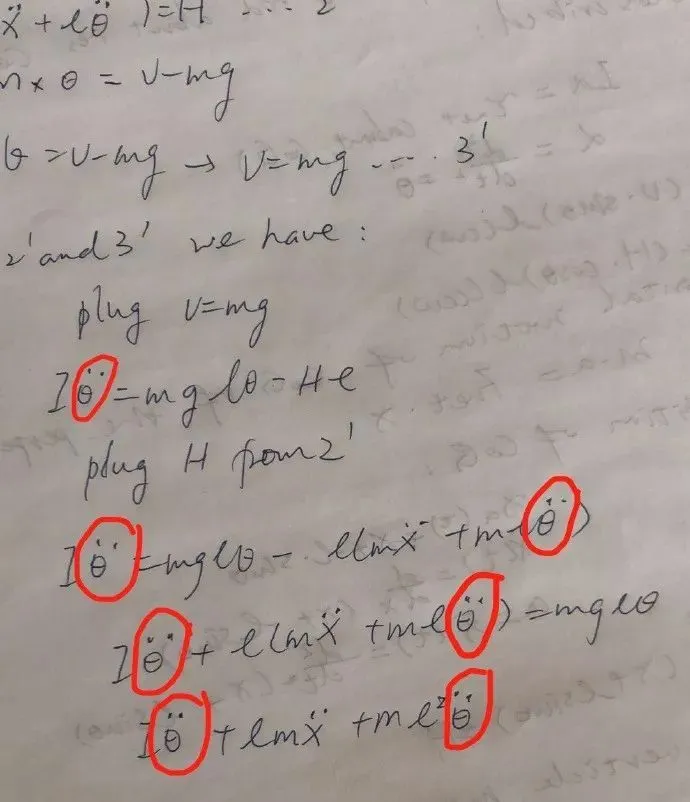 ẍ + lθ̈ ) = H ... 2'
m × 0 = V - mg
0 = V - mg → V = mg .... 3'
2' and 3' we have :
plug V = mg
Iθ̈ = mglθ - Hl
plug H from 2'
Iθ̈ = mglθ - l(mẍ + mlθ̈)
Iθ̈ + l(mẍ + mlθ̈) = mglθ
Iθ̈ + lmẍ + ml²θ̈